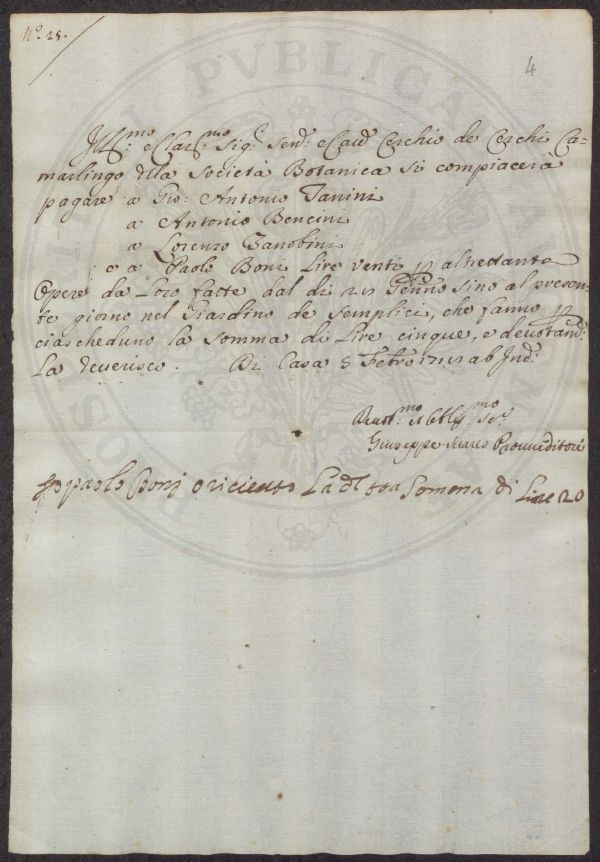 N.o 25.
4
Ill.mo e Clar.mo Sig.r Sen.r e Cav.r Cerchio de Cerchi Ca-
marlingo della Società Botanica si compiacerà
pagare a Gio: Antonio Tanini
a Antonio Bencini
a Lorenzo Zanobini
e a Paolo Boni Lire venti p altrettante
Opere da Loro fatte dal di Genno sino al presen-
te giorno nel Giardino de Semplici, che fanno p
ciascheduno la somma di Lire cinque, e devotam:
La reverisco. Di Casa 5 Febro ab Ind:
Devot.mo et Obblig.mo Ser.
Giuseppe Proveditore
Io paolo Bonj o riceuto La detta Somma di Lire 20